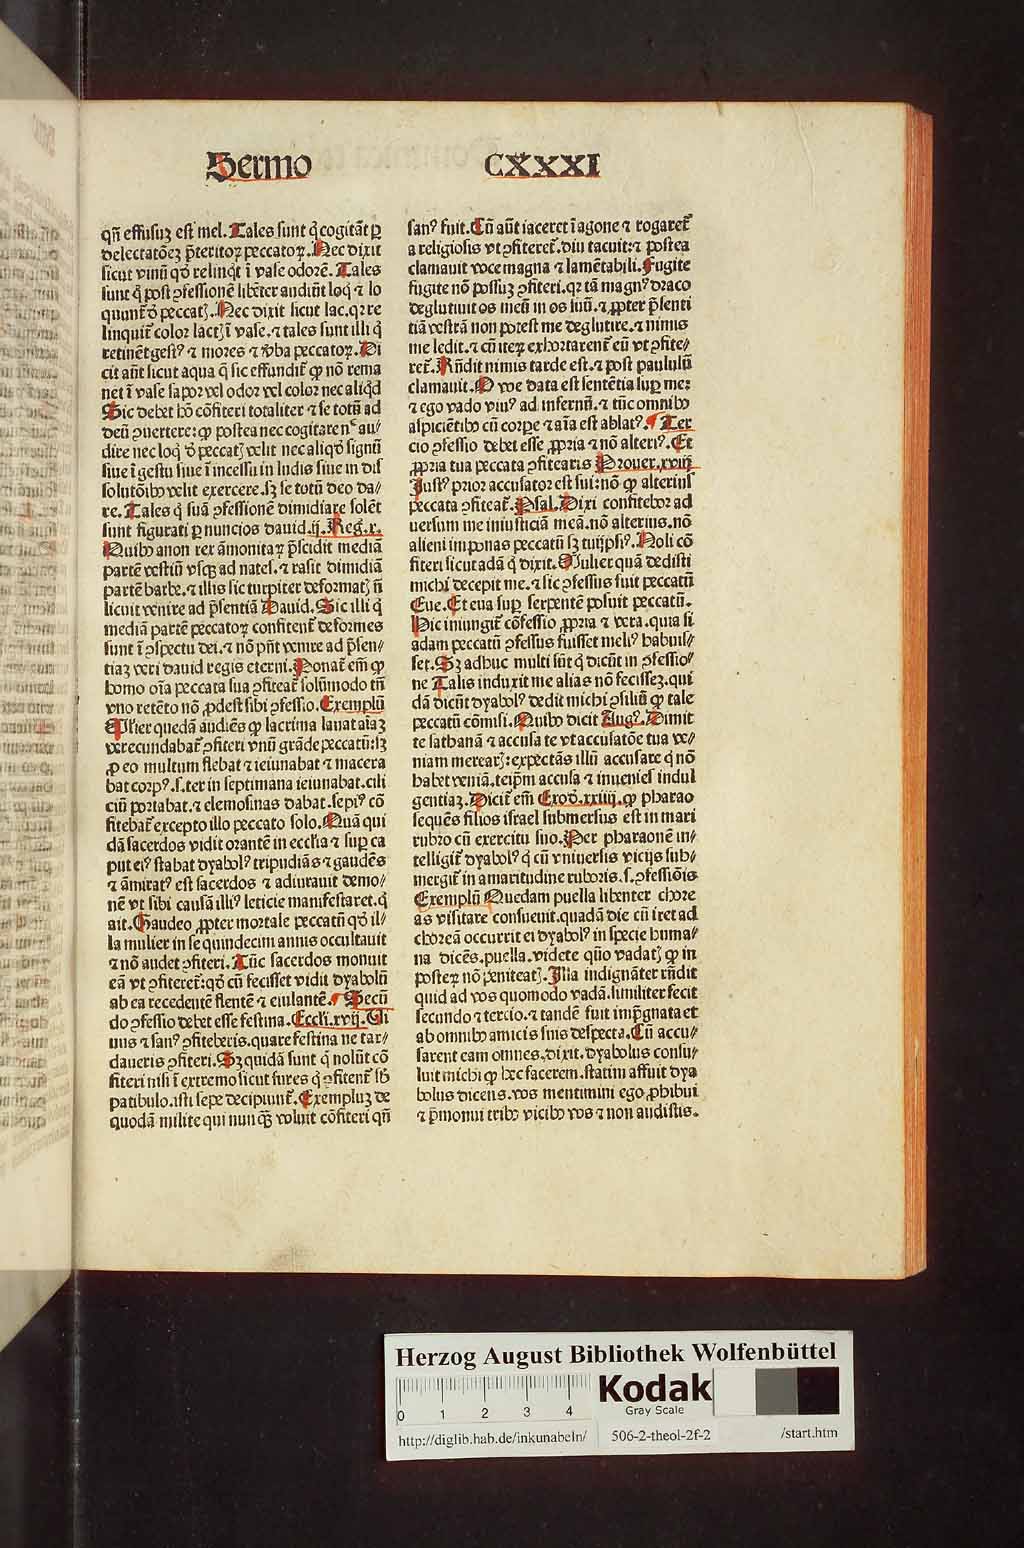 Sermo CXXXI
qñ effusuꝫ est mel. Tales sunt q̇ cogitãt ꝑ
delectatõeꝫ p̃teritoꝝ peccatoꝝ. Nec dixit
sicut vinũ qḋ relinq̇t ĩ vase odorẽ. Tales
sunt q̇ post ꝯfessionẽ libẽter audiũt loq̇ ⁊ lo
quunt᷑ ď peccatꝭ. Nec dixit sicut lac. qꝛ re
linquit᷑ color lactꝭ ĩ vase. ⁊ tales sunt illi q̇
retinẽt gestꝰ ⁊ mores ⁊ v̾ba peccatoꝝ. Di
cit aũt sicut aqua q̃ sic effundit᷑ ꝙ nõ rema
net ĩ vase sapor vel odor vel color nec aliq̇d
Sic debet hõ cõfiteri totaliter ⁊ se totũ ad
deũ ꝯuertere: ꝙ postea nec cogitare nᶜ au⸗
dire nec loq̇ ď peccatꝭ velit nec aliqḋ signũ
siue ĩ gestu siue ĩ incessu in ludis siue in dis
solutõibꝰ velit exercere. sꝫ se totũ deo da⸗
re. Tales q̇ suã ꝯfessionẽ dimidiare solẽt
sunt figurati ꝑ nuncios dauid. ij. Reg. x.
Quibꝰ anon rex ãmonitaꝝ p̃scidit mediã
partẽ vestiũ vsqꝫ ad nates. ⁊ rasit dimidiã
partẽ barbe. ⁊ illis sic turpiter deformatꝭ ñ
licuit venire ad p̃sentiã Dauid. Sic illi q̇
mediã partẽ peccatoꝝ confitent᷑ deformes
sunt ĩ ꝯspectu dei. ⁊ nõ pñt venire ad p̃sen⸗
tiaꝫ veri dauid regis eterni. Ponat᷑ em̃ ꝙ
homo oĩa peccata sua ꝯfiteat᷑ solũmodo tñ
vno retẽto nõ ꝓdest sibi ꝯfessio. Exemplũ
Mĺier quedã audiẽs ꝙ lacrima lauat aĩaꝫ
verecundabat᷑ ꝯfiteri vnũ grãde peccatũ: sꝫ
ꝓ eo multum flebat ⁊ ieiunabat ⁊ macera
bat corpꝰ. s. ter in septimana ieiunabat. cili
ciũ portabat. ⁊ elemosinas dabat. sepiꝰ cõ
fitebat᷑ excepto illo peccato solo. Quã qui
dã sacerdos vidit orantẽ in ecclĩa ⁊ suꝑ ca
put eiꝰ stabat dyabolꝰ tripudiãs ⁊ gaudẽs
⁊ ãmiratꝰ est sacerdos ⁊ adiurauit demo⸗
nẽ vt sibi causã illiꝰ leticie manifestaret. q̇
ait. Gaudeo ꝓpter mortale peccatũ qḋ il⸗
la mulier in se quindecim annis occultauit
⁊ nõ audet ꝯfiteri. Tũc sacerdos monuit
eã vt ꝯfiteret᷑: qḋ cũ fecisset vidit dyabolũ
ab ea recedentẽ flentẽ ⁊ eiulantẽ. ¶ Secũ
do ꝯfessio debet esse festina. Eccĺi. xvij. Vi
uus ⁊ sanꝰ ꝯfiteberis. quare festina ne tar⸗
daueris ꝯfiteri. Sꝫ quidã sunt q̇ nolũt cõ
fiteri nisi ĩ extremo sicut fures q̇ ꝯfitent᷑ sƀ
patibulo. isti sepe decipiunt᷑. Exempluꝫ de
quodã milite qui nunqꝫ voluit cõfiteri qñ
sanꝰ fuit. Cũ aũt iaceret ĩ agone ⁊ rogaret᷑
a religiosis vt ꝯfiteret᷑. diu tacuit: ⁊ postea
clamauit voce magna ⁊ lamẽtabili. Fugite
fugite nõ possuꝫ ꝯfiteri. qꝛ tã magnꝰ draco
deglutiuit os meũ in os suũ. ⁊ ꝓpter p̃senti
tiã vestrã non potest me deglutire. ⁊ nimis
me ledit. ⁊ cũ iteꝝ exhortarent᷑ eũ vt ꝯfite⸗
ret᷑. Rñdit nimis tarde est. ⁊ post paululũ
clamauit. O ve data est sentẽtia suꝑ me:
⁊ ego vado viuꝰ ad infernũ. ⁊ tũc omnibꝰ
aspiciẽtibꝰ cũ corꝑe ⁊ aĩa est ablatꝰ. ¶ Ter
cio ꝯfessio debet esse ꝓpria ⁊ nõ alteriꝰ. Et
ꝓpria tua peccata ꝯfitearis Prouer. xviij
Justꝰ prior accusator est sui: nõ ꝙ alterius
peccata ꝯfiteat᷑. Psal. Dixi confitebor ad
uersum me iniusticiã meã. nõ alterius. nõ
alieni imponas peccatũ sꝫ tuijpsiꝰ. Noli cõ
fiteri sicut adã q̇ dixit. Mulier quã dedisti
michi decepit me. ⁊ sic ꝯfessus fuit peccatũ
Eue. Et eua suꝑ serpentẽ posuit peccatũ.
Hic iniungit᷑ cõfessio ꝓpria ⁊ vera. quia si
adam peccatũ ꝯfessus fuisset meliꝰ habuis⸗
set. Sꝫ adhuc multi sũt q̇ dicũt in ꝯfessio⸗
ne Talis induxit me alias nõ fecisseꝫ. qui
dã dicũt dyabolꝰ dedit michi ꝯsiliũ ꝙ tale
peccatũ cõmisi. Quibꝰ dicit Augꝰ. Dimit
te sathanã ⁊ accusa te vt accusatõe tua ve⸗
niam merearꝭ: expectãs illũ accusare q̇ nõ
habet veniã. teip̃m accusa ⁊ inuenies indul
gentiaꝫ. Dicit᷑ em̃ Exoď. xxiiij. ꝙ pharao
sequẽs filios israel submersus est in mari
rubro cũ exercitu suo. Per pharaonẽ in⸗
telligit᷑ dyabolꝰ q̇ cũ vniuersis vicijs sub⸗
mergit᷑ in amaritudine ruboris. s. ꝯfessiõis
Exemplũ Quedam puella libenter chore
as visitare consueuit. quadã die cũ iret ad
choreã occurrit ei dyabolꝰ in specie huma⸗
na dicẽs. puella. videte quõ vadatꝭ ꝙ in
posteꝝ nõ peniteatꝭ. Illa indignãter rñdit
quid ad vos quomodo vadã. similiter fecit
secundo ⁊ tercio. ⁊ tandẽ fuit imp̃gnata et
ab omnibꝰ amicis suis despecta. Cũ accu⸗
sarent eam omnes. dixit. dyabolus consu⸗
luit michi ꝙ hec facerem. statim affuit dya
bolus dicens. vos mentimini ego ꝓhibui
⁊ p̃monui tribꝰ vicibꝰ vos ⁊ non audistis.
Herzog August Bibliothek Wolfenbüttel
0 1 2 3 4
Kodak
Gray Scale
http://diglib.hab.de/inkunabeln/ 506-2-theol-2f-2 /start.htm